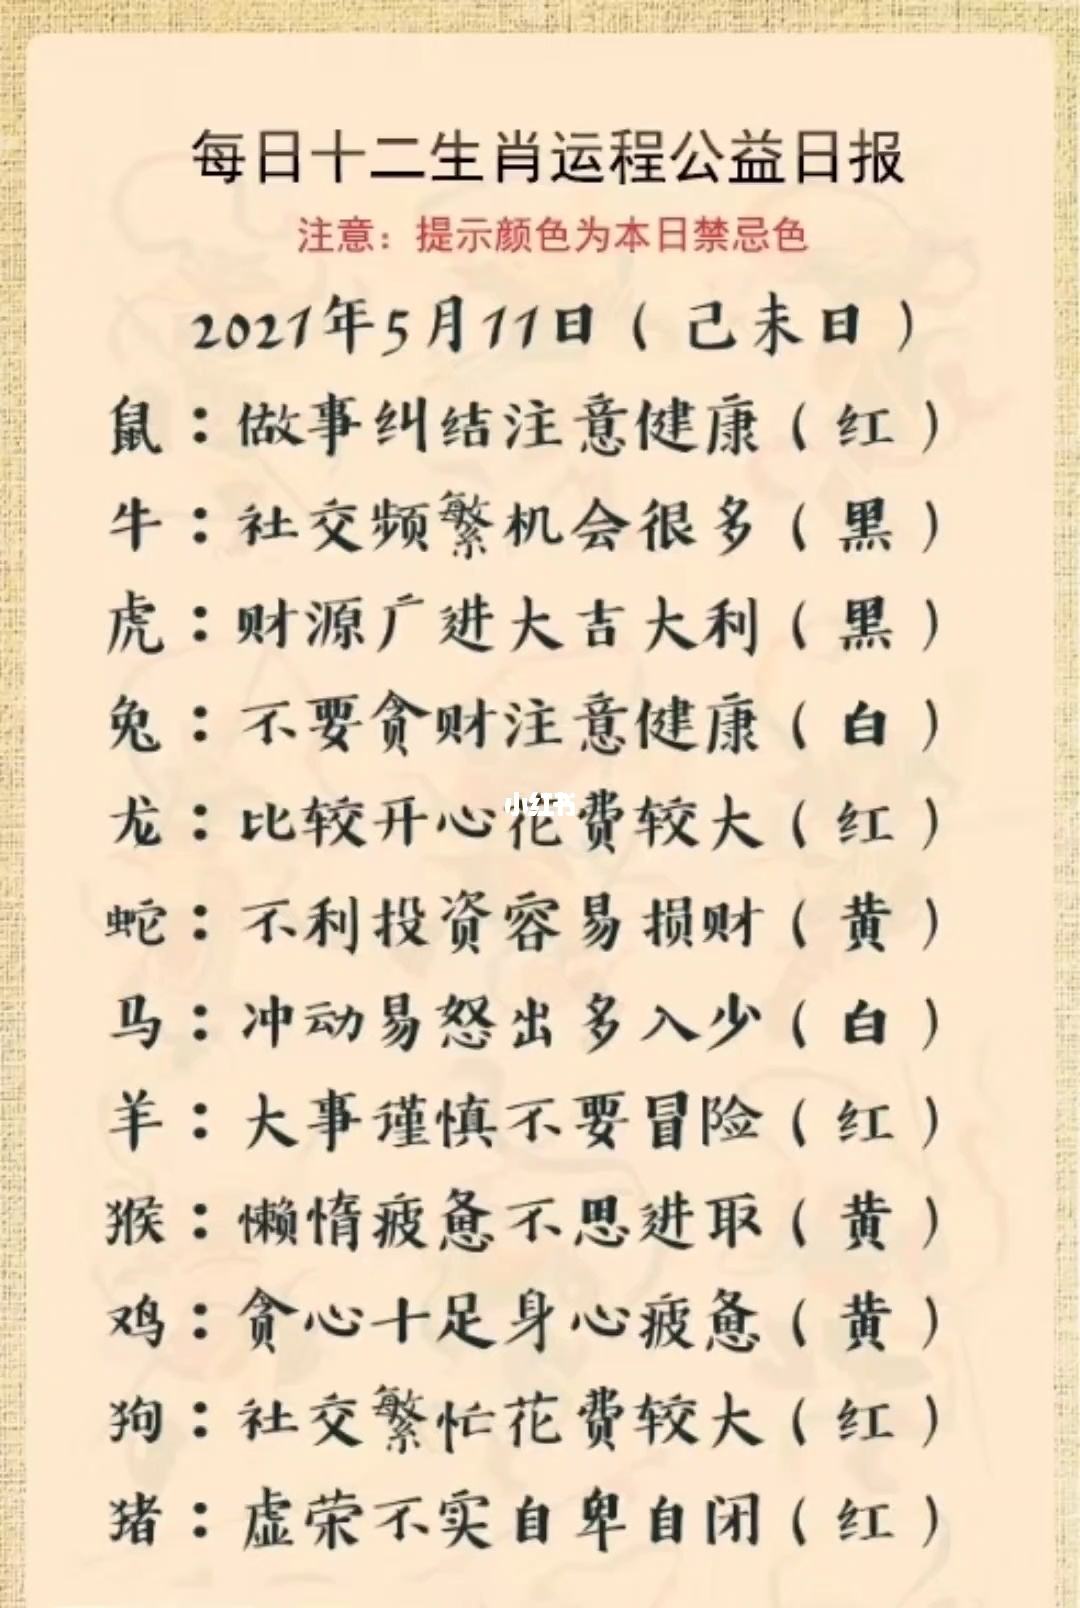 每日十二生肖运程公益日报
注意：提示颜色为本日禁忌色
2021年5月11日（己未日）
鼠：做事纠结注意健康（红）
牛：社交频繁机会很多（黑）
虎：财源广进大吉大利（黑）
兔：不要贪财注意健康（白）
龙：比较开心花费较大（红）
小红书
蛇：不利投资容易损财（黄）
马：冲动易怒出多入少（白）
羊：大事谨慎不要冒险（红）
猴：懒惰疲惫不思进取（黄）
鸡：贪心十足身心疲惫（黄）
狗：社交繁忙花费较大（红）
猪：虚荣不实自卑自闭（红）